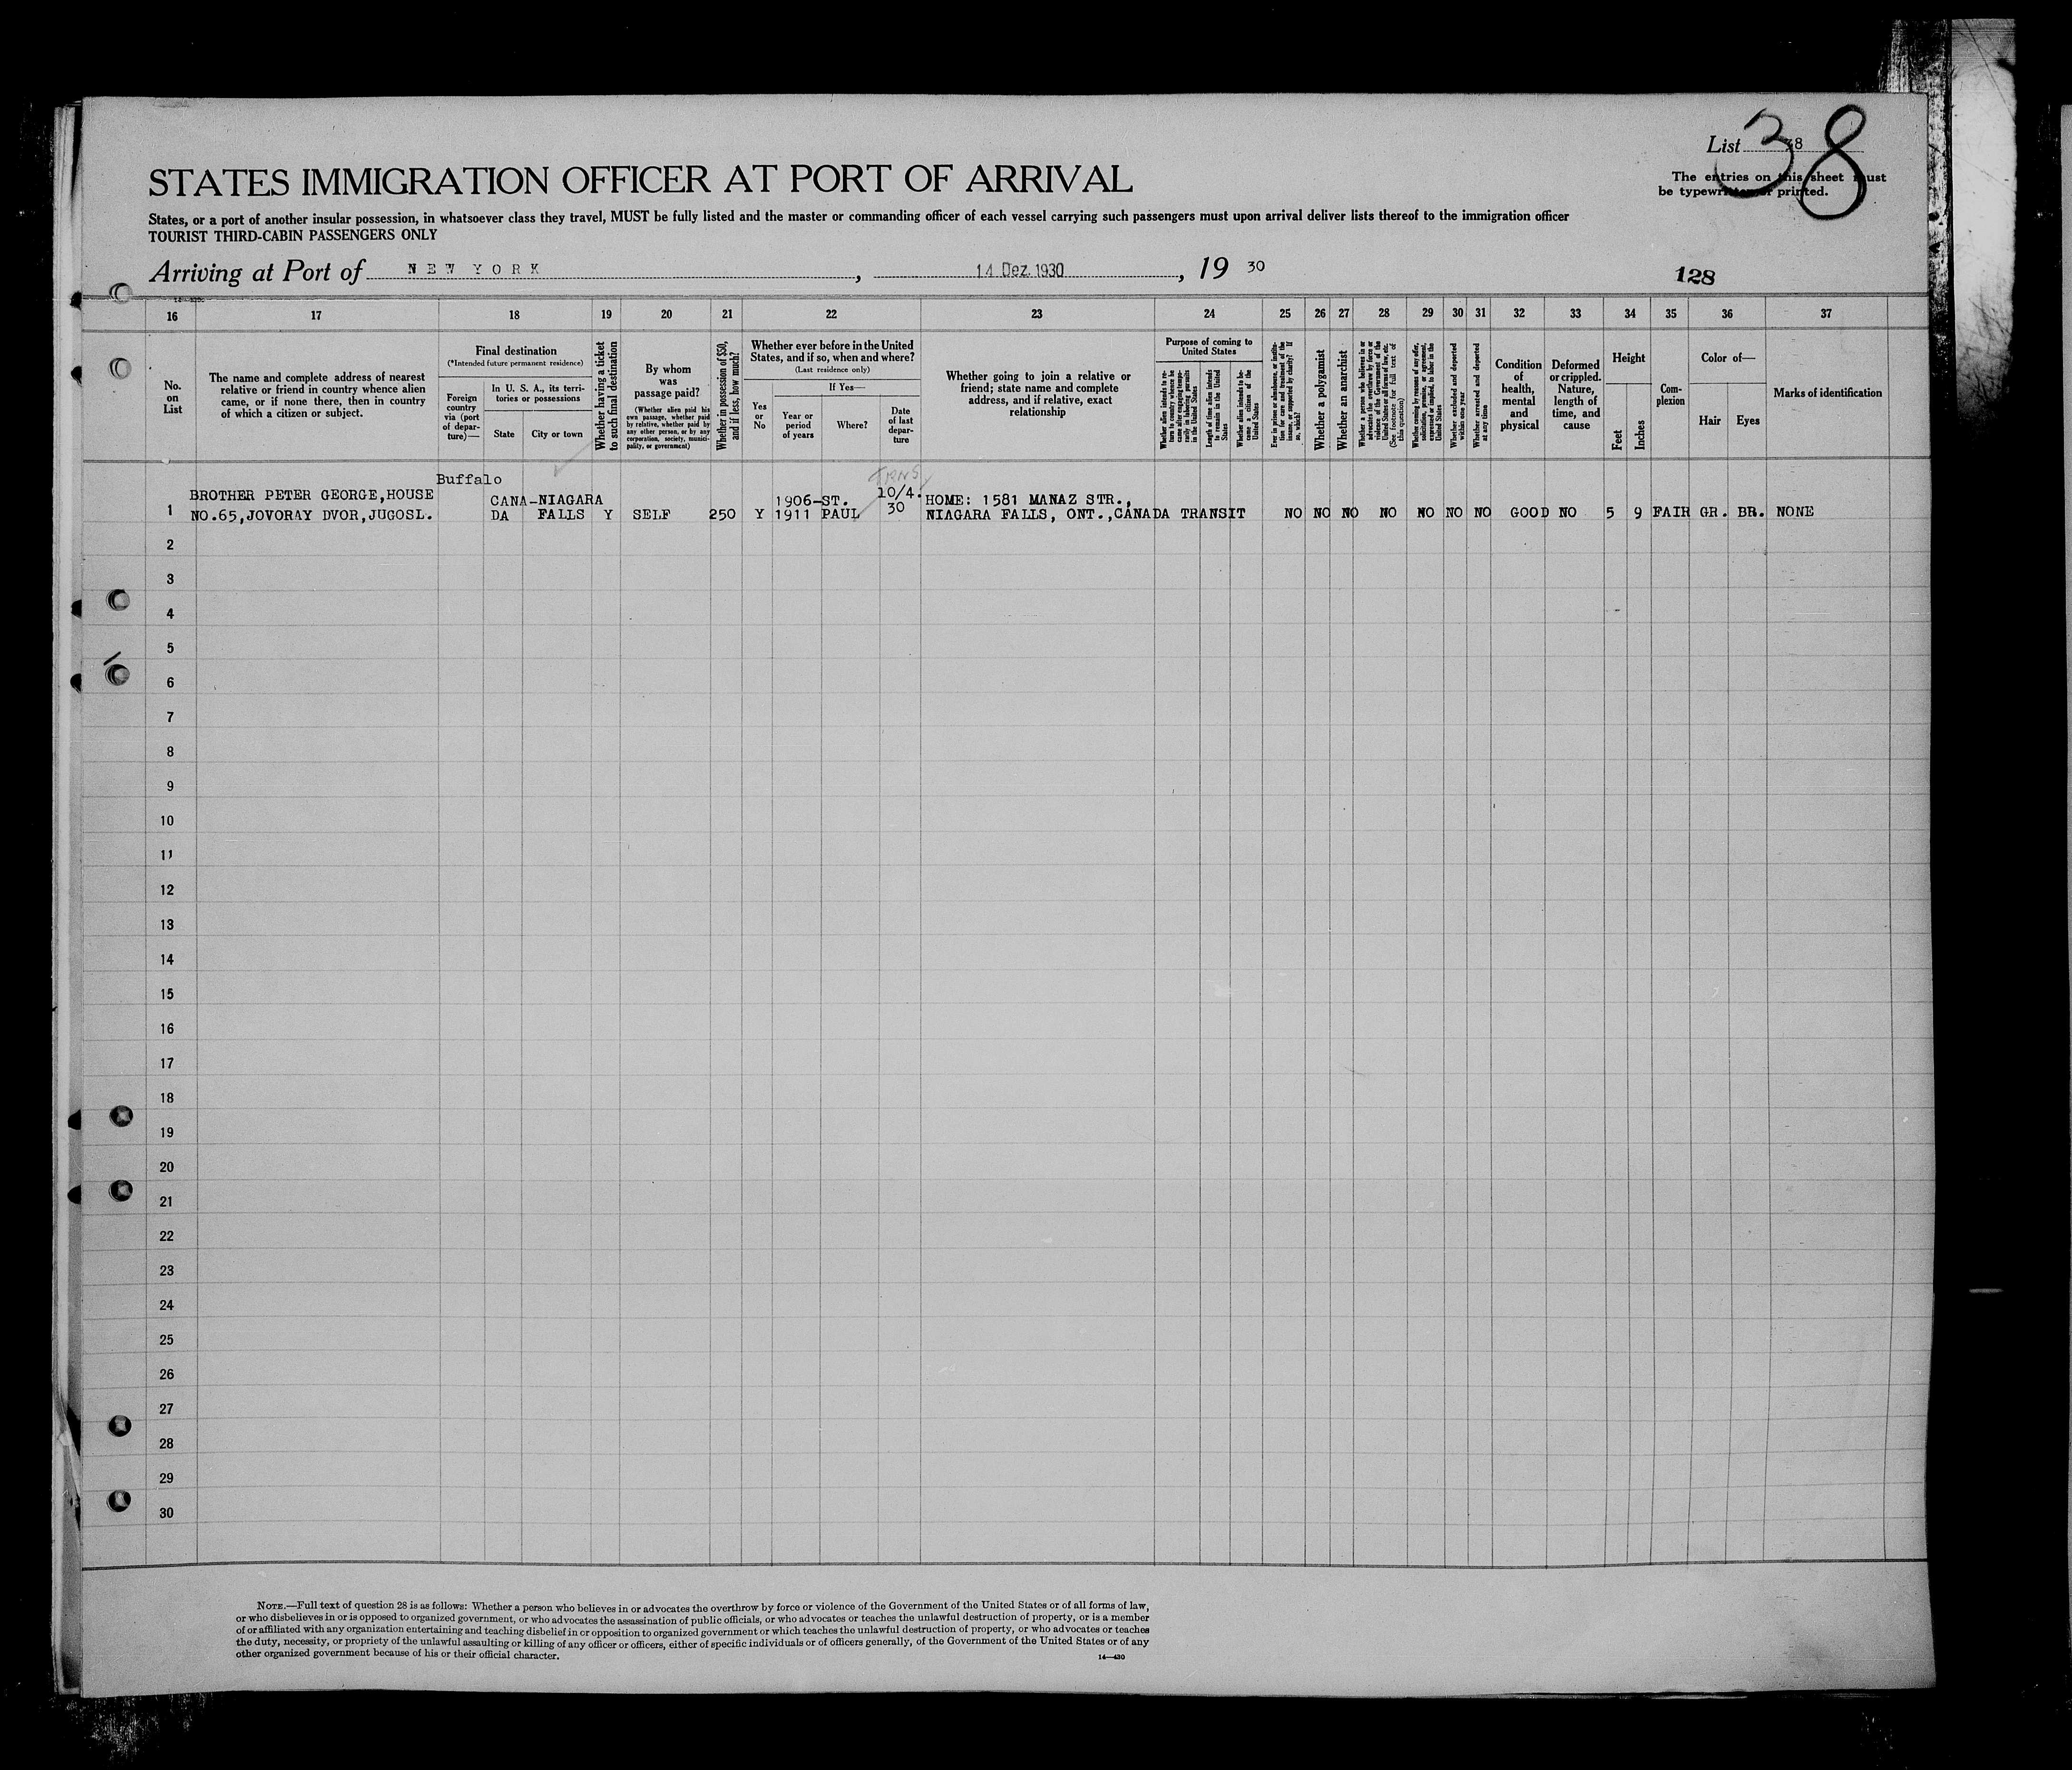 List 38
38
The entries on this sheet must
be typewritten or printed.
STATES IMMIGRATION OFFICER AT PORT OF ARRIVAL
States, or a port of another insular possession, in whatsoever class they travel, MUST be fully listed and the master or commanding officer of each vessel carrying such passengers must upon arrival deliver lists thereof to the immigration officer
TOURIST THIRD-CABIN PASSENGERS ONLY
Arriving at Port of NEW YORK, 14 Dez. 1930, 19 30
128
16 17 18 19 20 21 22 23 24 25 26 27 28 29 30 31 32 33 34 35 36 37
No.
on
List
The name and complete address of nearest
relative or friend in country whence alien
came, or if none there, then in country
of which a citizen or subject.
Final destination
(*Intended future permanent residence)
Foreign
country
via (port
of depar-
ture)—
In U. S. A., its terri-
tories or possessions
State
City or town
Whether having a ticket
to such final destination
By whom
was
passage paid?
(Whether alien paid his
own passage, whether paid
by relative, whether paid by
any other person, or by any
corporation, society, munici-
pality, or government)
Whether in possession of $50,
and if less, how much?
Whether ever before in the United
States, and if so, when and where?
(Last residence only)
Yes
or
No
If Yes—
Year or
period
of years
Where?
Date
of last
depar-
ture
Whether going to join a relative or
friend; state name and complete
address, and if relative, exact
relationship
Purpose of coming to
United States
Whether alien intends to re-
turn to country whence he
came after engaging tempo-
rarily in laboring pursuits
in the United States
Length of time alien intends
to remain in the United
States
Whether alien intends to be-
come a citizen of the
United States
Ever in prison or almshouse, or institu-
tion for care and treatment of the
insane, or supported by charity? If
so, which?
Whether a polygamist
Whether an anarchist
Whether a person who believes in or
advocates the overthrow by force or
violence of the Government of the
United States or all forms of law, etc.
(See footnote for full text of
this question)
Whether coming by reason of any offer,
solicitation, promise, or agreement,
expressed or implied, to labor in the
United States
Whether excluded and deported
within one year
Whether arrested and deported
at any time
Condition
of
health,
mental
and
physical
Deformed
or crippled.
Nature,
length of
time, and
cause
Height
Feet
Inches
Com-
plexion
Color of—
Hair
Eyes
Marks of identification
Buffalo
TRNS
BROTHER PETER GEORGE,HOUSE CANA-NIAGARA 1906-ST. 10/4. HOME: 1581 MANAZ STR.,
1 NO.65,JOVORAY DVOR,JUGOSL. DA FALLS Y SELF 250 Y 1911 PAUL 30 NIAGARA FALLS, ONT.,CANADA TRANSIT NO NO NO NO NO NO NO GOOD NO 5 9 FAIR GR. BR. NONE
2
3
4
5
6
7
8
9
10
11
12
13
14
15
16
17
18
19
20
21
22
23
24
25
26
27
28
29
30
NOTE.—Full text of question 28 is as follows: Whether a person who believes in or advocates the overthrow by force or violence of the Government of the United States or of all forms of law,
or who disbelieves in or is opposed to organized government, or who advocates the assassination of public officials, or who advocates or teaches the unlawful destruction of property, or is a member
of or affiliated with any organization entertaining and teaching disbelief in or opposition to organized government or which teaches the unlawful destruction of property, or who advocates or teaches
the duty, necessity, or propriety of the unlawful assaulting or killing of any officer or officers, either of specific individuals or of officers generally, of the Government of the United States or of any
other organized government because of his or their official character.
14—430